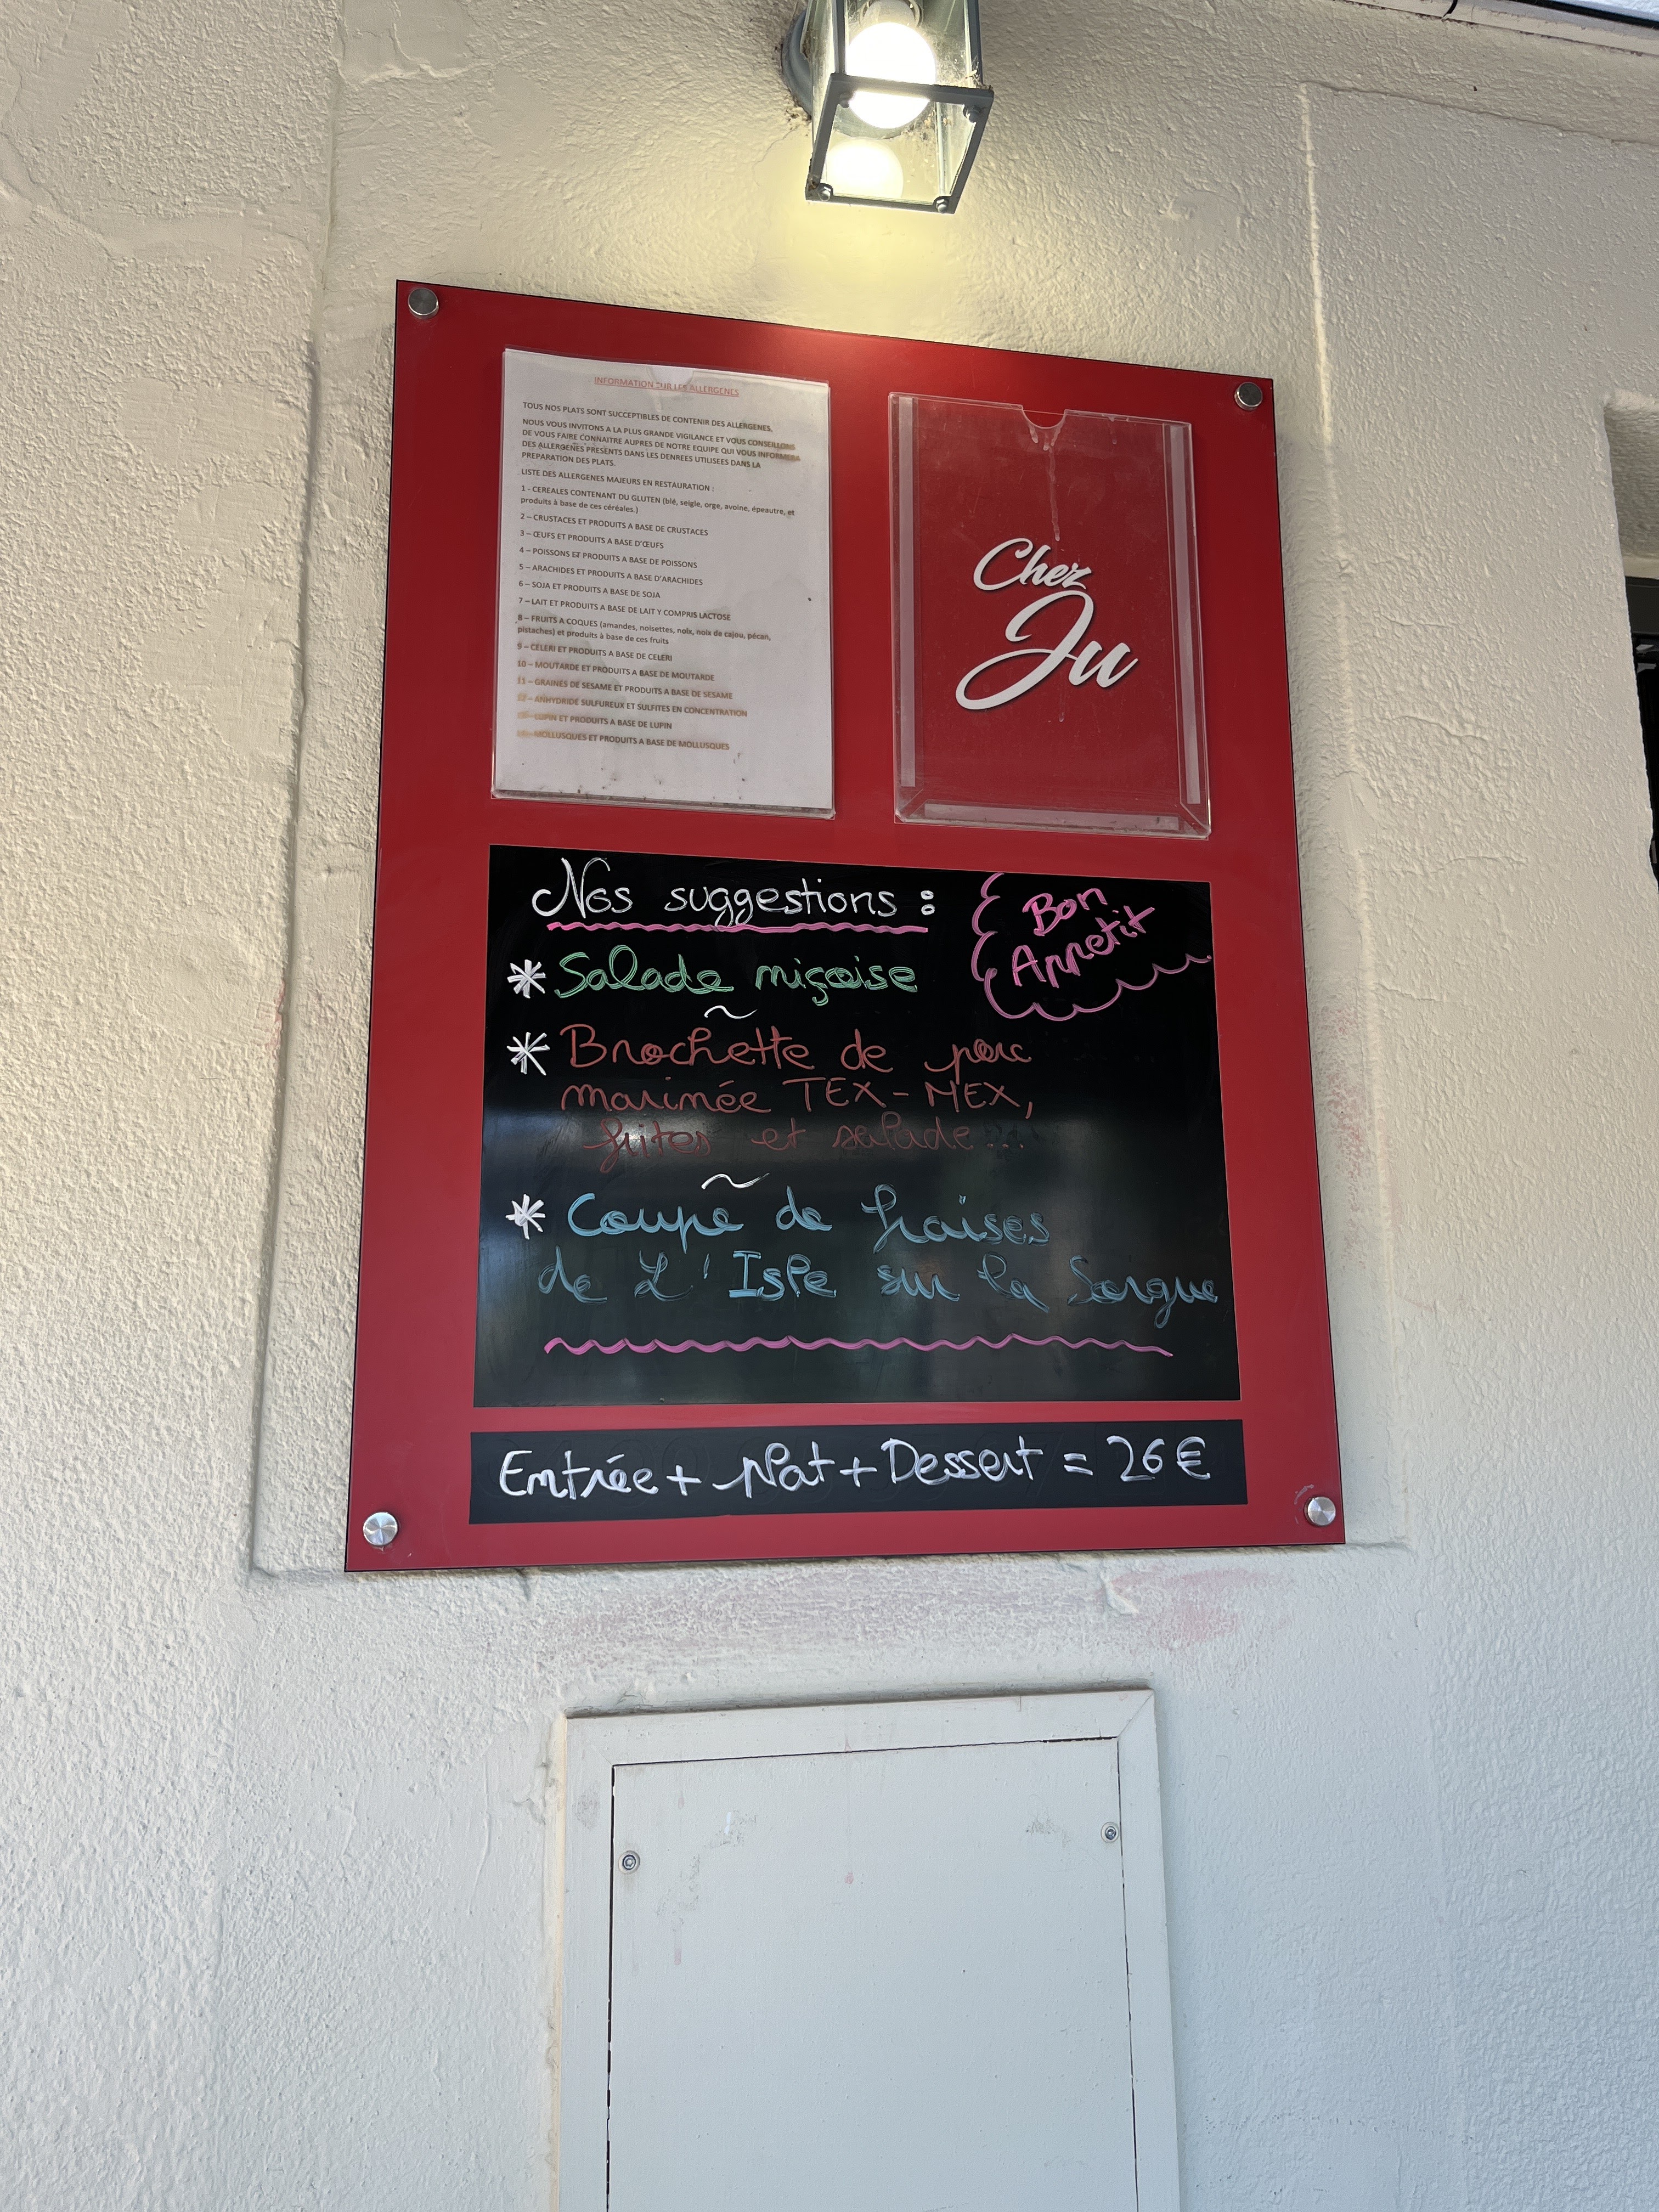 INFORMATION SUR LES ALLERGENES
TOUS NOS PLATS SONT SUCCEPTIBLES DE CONTENIR DES ALLERGENES.
NOUS VOUS INVITONS A LA PLUS GRANDE VIGILANCE ET VOUS CONSEILLONS
DE VOUS FAIRE CONNAITRE AUPRES DE NOTRE EQUIPE QUI VOUS INFORMERA
DES ALLERGENES PRESENTS DANS LES DENREES UTILISEES DANS LA
PREPARATION DES PLATS.
LISTE DES ALLERGENES MAJEURS EN RESTAURATION :
1 - CEREALES CONTENANT DU GLUTEN (blé, seigle, orge, avoine, épeautre, et
produits à base de ces céréales.)
2 – CRUSTACES ET PRODUITS A BASE DE CRUSTACES
3 – ŒUFS ET PRODUITS A BASE D'ŒUFS
4 – POISSONS ET PRODUITS A BASE DE POISSONS
5 – ARACHIDES ET PRODUITS A BASE D'ARACHIDES
6 – SOJA ET PRODUITS A BASE DE SOJA
7 – LAIT ET PRODUITS A BASE DE LAIT Y COMPRIS LACTOSE
8 – FRUITS A COQUES (amandes, noisettes, noix, noix de cajou, pécan,
pistaches) et produits à base de ces fruits
9 – CELERI ET PRODUITS A BASE DE CELERI
10 – MOUTARDE ET PRODUITS A BASE DE MOUTARDE
11 – GRAINES DE SESAME ET PRODUITS A BASE DE SESAME
12 – ANHYDRIDE SULFUREUX ET SULFITES EN CONCENTRATION
13 – LUPIN ET PRODUITS A BASE DE LUPIN
14 – MOLLUSQUES ET PRODUITS A BASE DE MOLLUSQUES
Chez
Ju
Nos suggestions :
Bon
Appetit
* Salade niçoise
~
* Brochette de porc
marinée TEX-MEX,
frites et salade...
~
* Coupe de fraises
de L'Isle sur la Sorgue
Entrée + plat + Dessert = 26 €